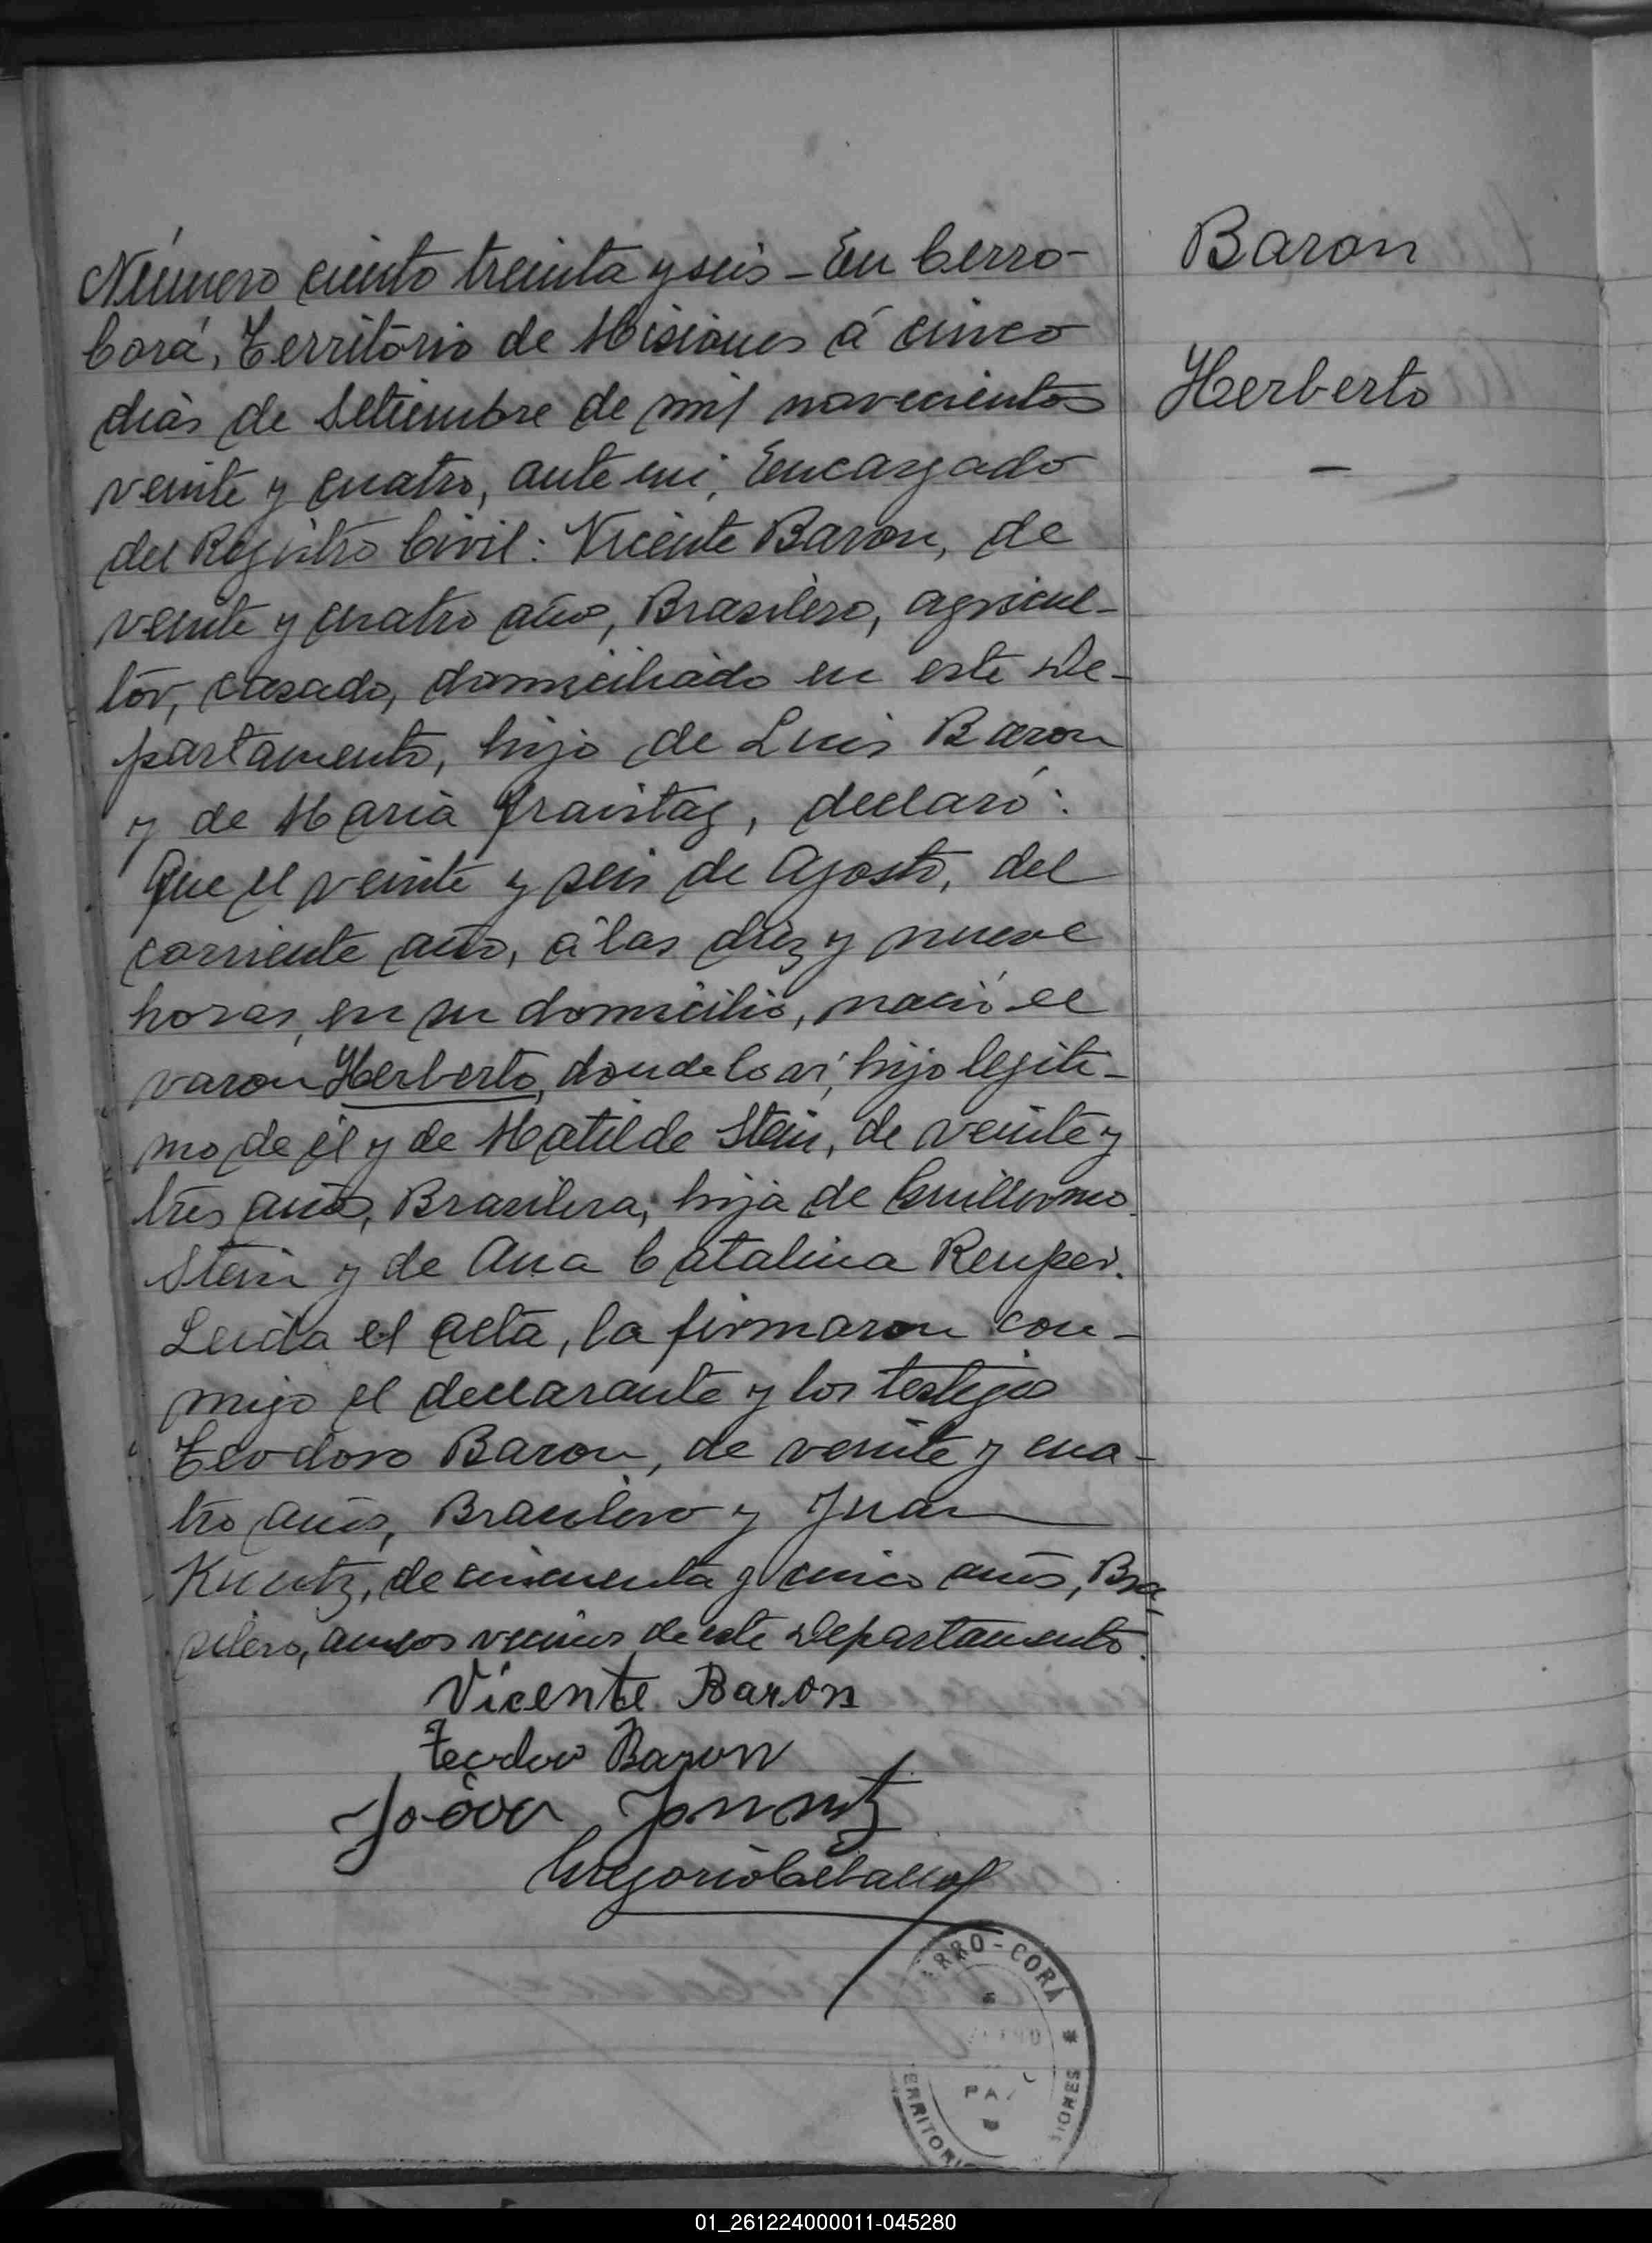 Número ciento treinta y seis - En Cerro-
Corá, Territorio de Misiones á cinco
dias de Setiembre de mil novecientos
veinte y cuatro, ante mi, Encargado
del Registro Civil: Vicente Baron, de
veinte y cuatro años, Brasilero, agricul-
tor, casado, domiciliado en este De-
partamento, hijo de Luis Baron
y de Maria Fraistag, declaró:
Que el veinte y seis de Agosto, del
corriente año, á las diez y nueve
horas, en su domicilio, nació el
varon Herberto, donde lo ví, hijo legiti-
mo de él y de Matilde Stein, de veinte y
tres años, Brasilera, hija de Guillermo
Stein y de Ana Catalina Renper.
Leida el acta, la firmaron con-
migo el declarante y los testigos
Teodoro Baron, de veinte y cua-
tro años, Brasilero y Juan
Kuntz, de cincuenta y cinco años, Bra-
silero, ambos vecinos de este Departamento.
Vicente Baron
Teodoro Baron
João
Gregorio Ceballos
Baron
Herberto
-
ERRO-CORÁ *
PAZ
TERRITORIO
SIONES
01_261224000011-045280